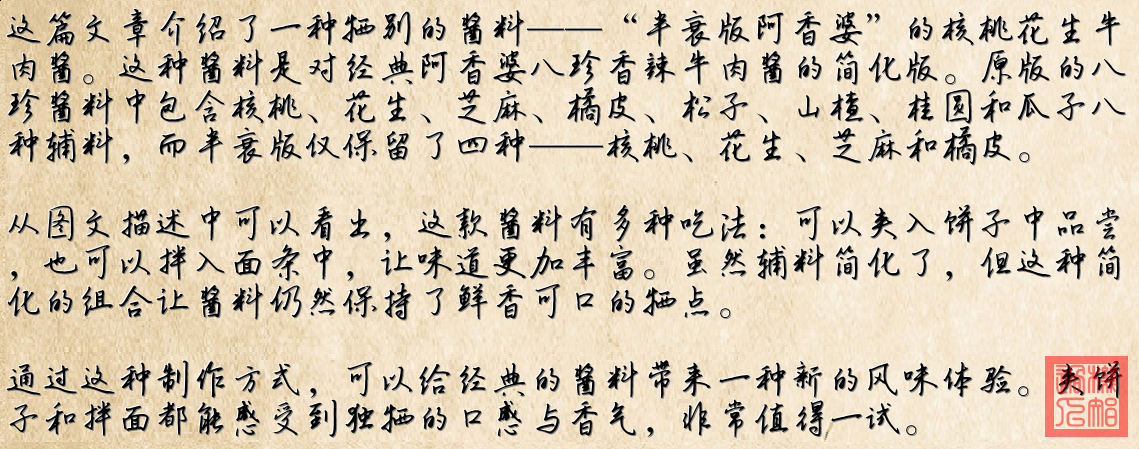 这篇文章介绍了一种特别的酱料——“半衰版阿香婆”的核桃花生牛
肉酱。这种酱料是对经典阿香婆八珍香辣牛肉酱的简化版。原版的八
珍酱料中包含核桃、花生、芝麻、橘皮、松子、山楂、桂圆和瓜子八
种辅料，而半衰版仅保留了四种——核桃、花生、芝麻和橘皮。
从图文描述中可以看出，这款酱料有多种吃法：可以夹入饼子中品尝
，也可以拌入面条中，让味道更加丰富。虽然辅料简化了，但这种简
化的组合让酱料仍然保持了鲜香可口的特点。
通过这种制作方式，可以给经典的酱料带来一种新的风味体验。夹饼
子和拌面都能感受到独特的口感与香气，非常值得一试。